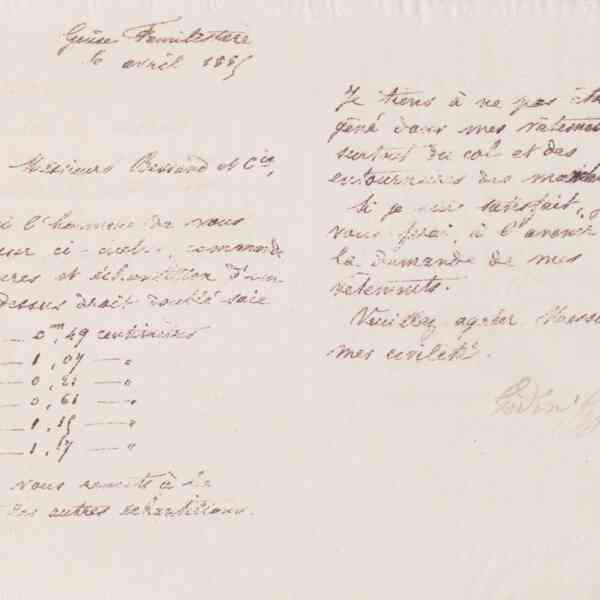 Guise Familistère
6 avril 1885
Messieurs Bessand et Cie,
l'honneur de vous
ci-inclus, commande
et échantillon d'un
dessus droit doublé soie
0m,49 centimètres
1,07 — "
0,21 — "
0,61 — "
1,15 — "
1,17 — "
vous remets à la
des autres échantillons.
Je tiens à ne pas
gêné dans mes
surtout du col et des
entournures des
Si je suis satisfait,
vous ferai, à l'avenir
la demande de mes
vêtements.
Veuillez agréer
mes civilités.
Godin